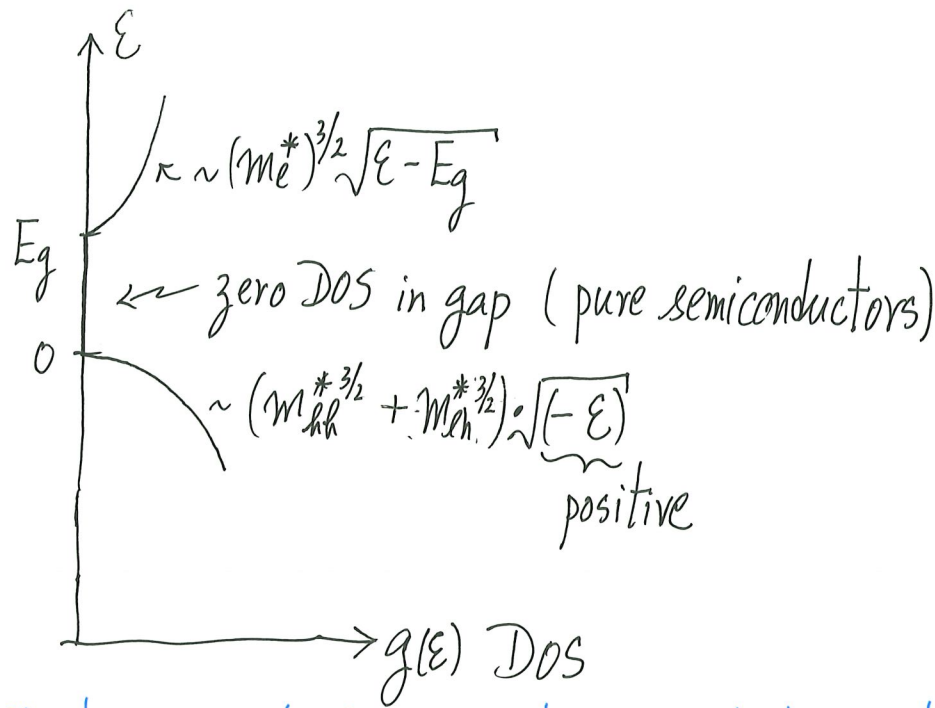 ε
~(me*)^3/2 √(ε - Eg)
Eg
← zero DOS in gap (pure semiconductors)
0
~ (m*hh^3/2 + m*lh^3/2)·√(-ε)
positive
g(ε) DOS